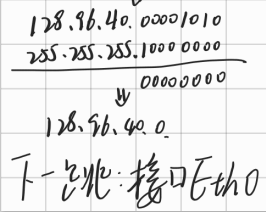 128.96.40.00001010
255.255.255.10000000
00000000
⇓
128.96.40.0
下一跳:接口Eth0